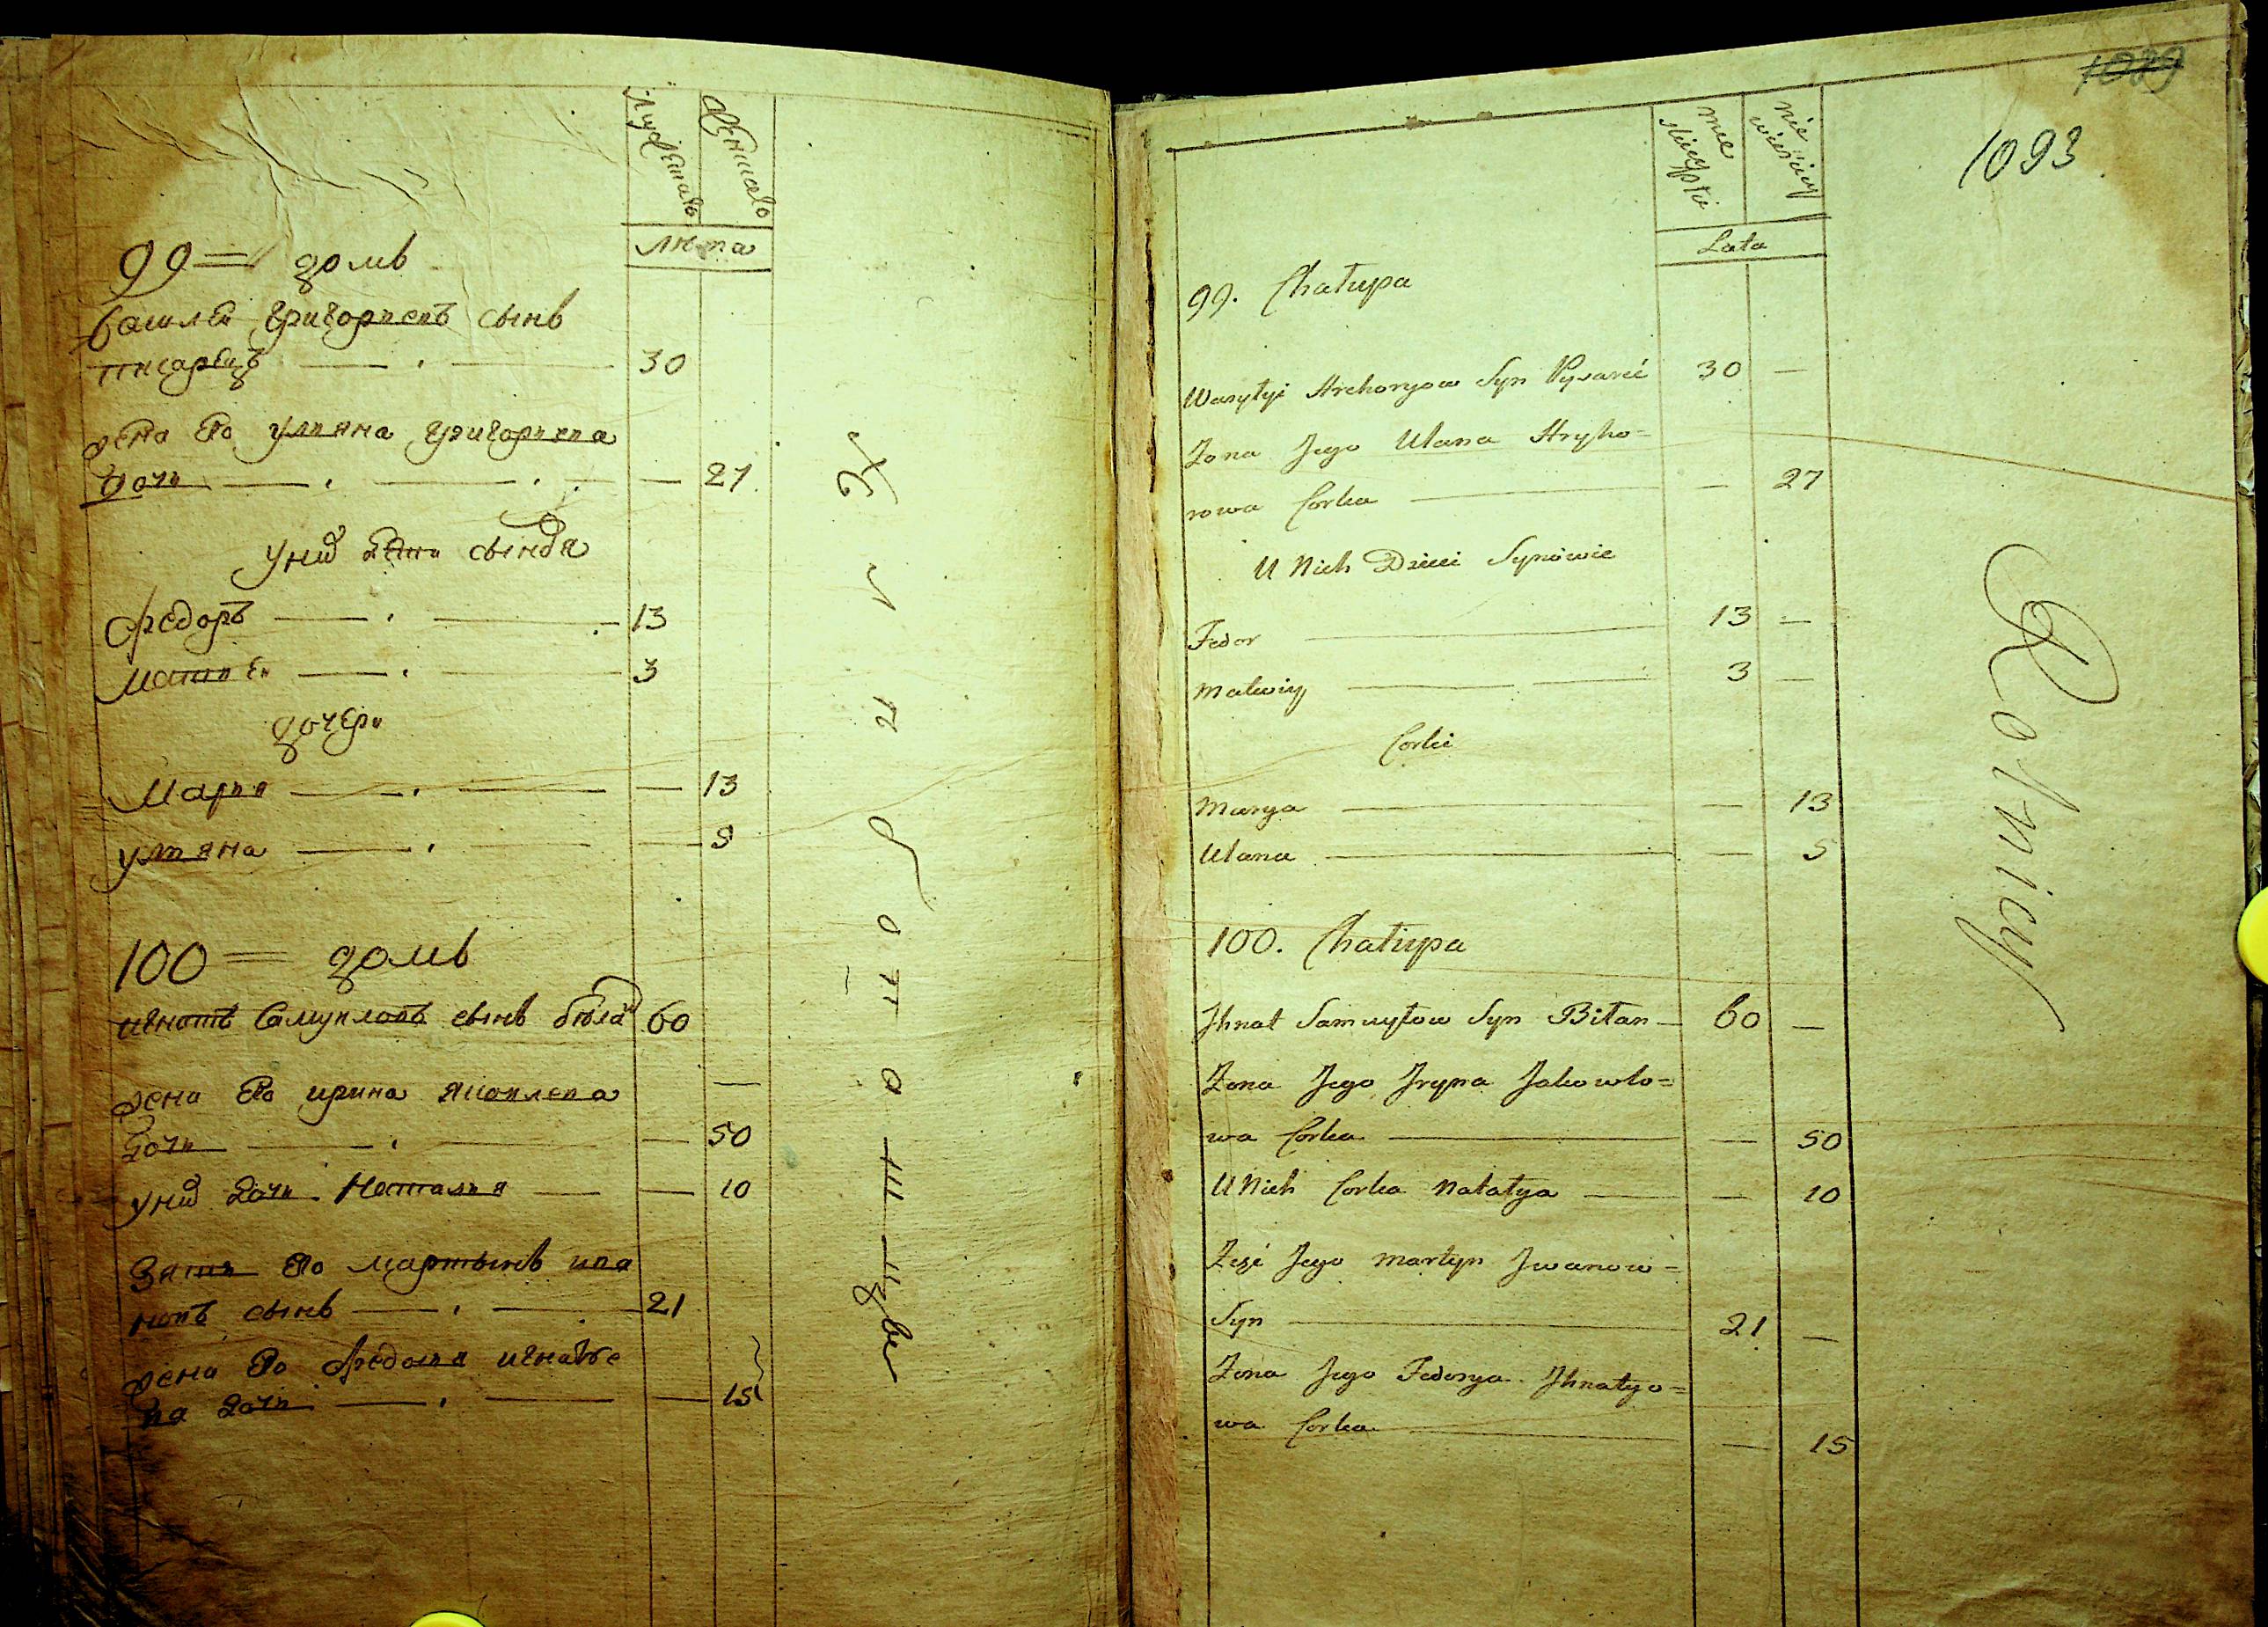 Мужеска
Женска
Лѣта
99 = домъ
василей григориевъ сынъ
писарецъ — 30
жена его улияна григориева
дочь — — 27
у них дети сыновя
Федоръ — 13
Матвей — 3
дочери
Мария — — 13
улияна — — 5
100 = домъ
игнатъ самуиловъ сынъ бѣлан 60
жена его ирина яковлева —
дочь — — 50
у них дочь Наталия — — 10
Зять его мартынъ ива
новъ сынъ — 21
жена его Федосия игнатье
ва дочь — — 15
1089
1093
Męskie
Niewieście
Lata
99. Chałupa
Wasylyi Hrehoryow Syn Pysareć 30 —
Żona Jego Ulana Hryho=
rowa Corka — — 27
U Nich Dzieci Synowie
Fedor — 13 —
Matwiy — 3 —
Corki
Marya — — 13
Ulana — — 5
100. Chałupa
Jhnat Samuyłow Syn Biłan — 60 —
Żona Jego Jryna Jakowlo=
wa Corka — — 50
U Nich Corka Natalya — — 10
Zęć Jego Martyn Jwanow=
Syn — 21 —
Żona Jego Fedosya Jhnatyo=
wa Corka — — 15
Rolnicy